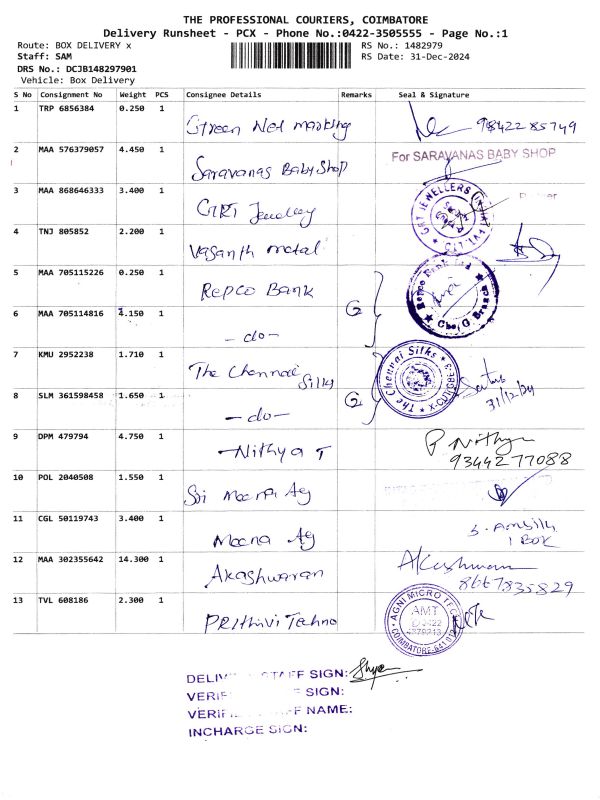 THE PROFESSIONAL COURIERS, COIMBATORE
Delivery Runsheet - PCX - Phone No.:0422-3505555 - Page No.:1
Route: BOX DELIVERY x RS No.: 1482979
Staff: SAM RS Date: 31-Dec-2024
DRS No.: DCJB148297901
Vehicle: Box Delivery
S No Consignment No Weight PCS Consignee Details Remarks Seal & Signature
1 TRP 6856384 0.250 1 Green Net marking 98422 85749
2 MAA 576379057 4.450 1 Saravanas Baby Shop For SARAVANAS BABY SHOP
3 MAA 868646333 3.400 1 GRT Jewellery GRT JEWELLERS
4 TNJ 805852 2.200 1 Vasanth metal
5 MAA 705115226 0.250 1 REPCO BANK Repco Bank Ltd
6 MAA 705114816 4.150 1 -do- Branch
7 KMU 2952238 1.710 1 The Chennai Silks The Chennai Silks
8 SLM 361598458 1.650 1 -do- 31/12/24
9 DPM 479794 4.750 1 Nithya T P Nithya
9344277088
10 POL 2040508 1.550 1 Sri Meena Ag
11 CGL 50119743 3.400 1 Meena Ag 1 BOX
12 MAA 302355642 14.300 1 Akashwaran
8667835829
13 TVL 608186 2.300 1 Prithivi Techno AGNI MICRO
AMT
COIMBATORE
DELIV STAFF SIGN:
VERIF SIGN:
VERIF STAFF NAME:
INCHARGE SIGN: